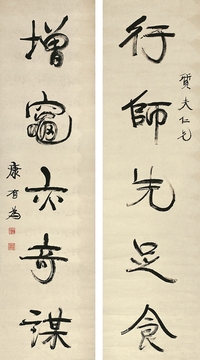 行師先足食
質夫仁兄
增竈亦奇謀
康有為